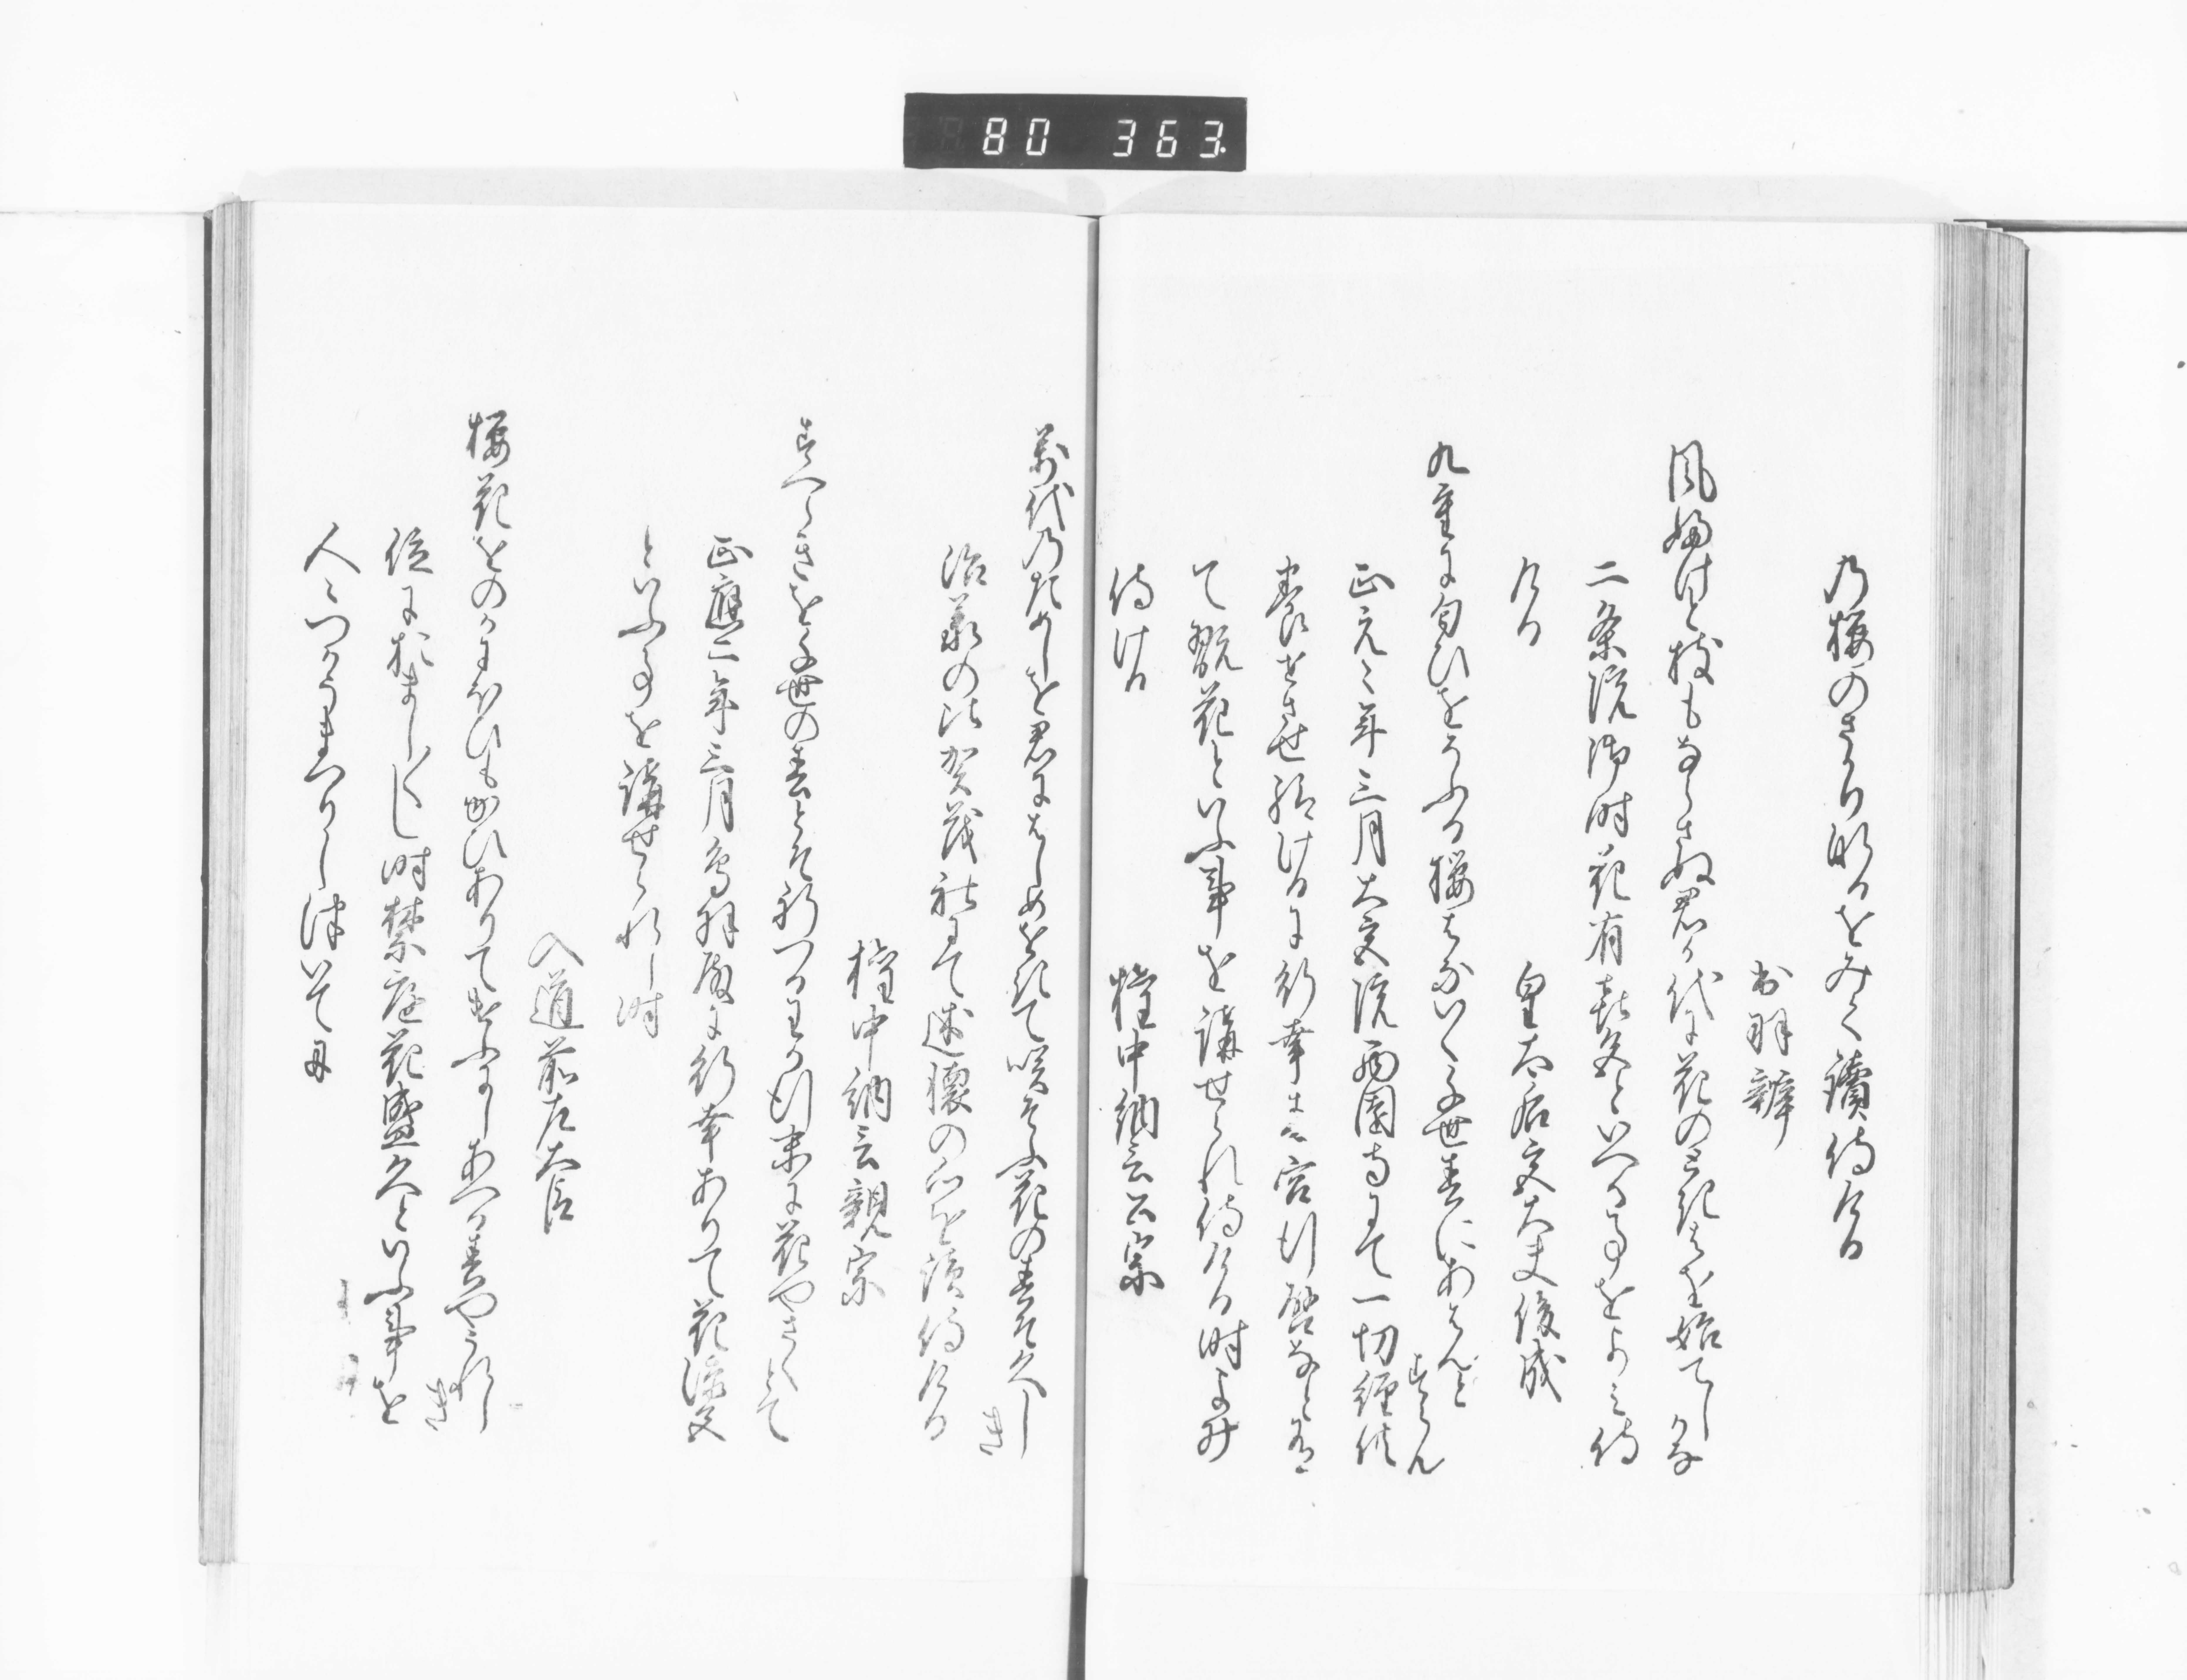 80 363.
乃桜のさかり成るをみて讀侍ける
出羽辨
風ふけと枝もならさぬ君か代に花のときはを始てしかな
二条院御時花有喜色といへる事をよみ侍
ける
皇太后宮大夫俊成
九重に匂ひをそふる桜花いく千世春にあはんとすらん
正元々年三月大宮院西園寺にて一切経供
養せさせ給けるに行幸
東宮行啓なと有
て翫花といふ事を講せられ侍ける時よみ
侍ける
権中納言公宗
萬代のためしを君にはしめをきて咲そふ花の春そ久しき
治承の比賀茂社にて述懐の心を讀侍ける
権中納言親宗
すへらきを千世の春とそ祈つるわか行末に花やさくとて
正應二年三月鳥羽殿に行幸ありて花添
といふ事を講せられし時
入道前左大臣
桜花をのかにほひもかひありてけふにしあへる春やうれしき
位におましましし時禁庭花盛久といふ事を
人々つかうまつりし次に